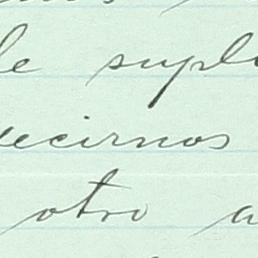 le supl
ecirnos
otro a